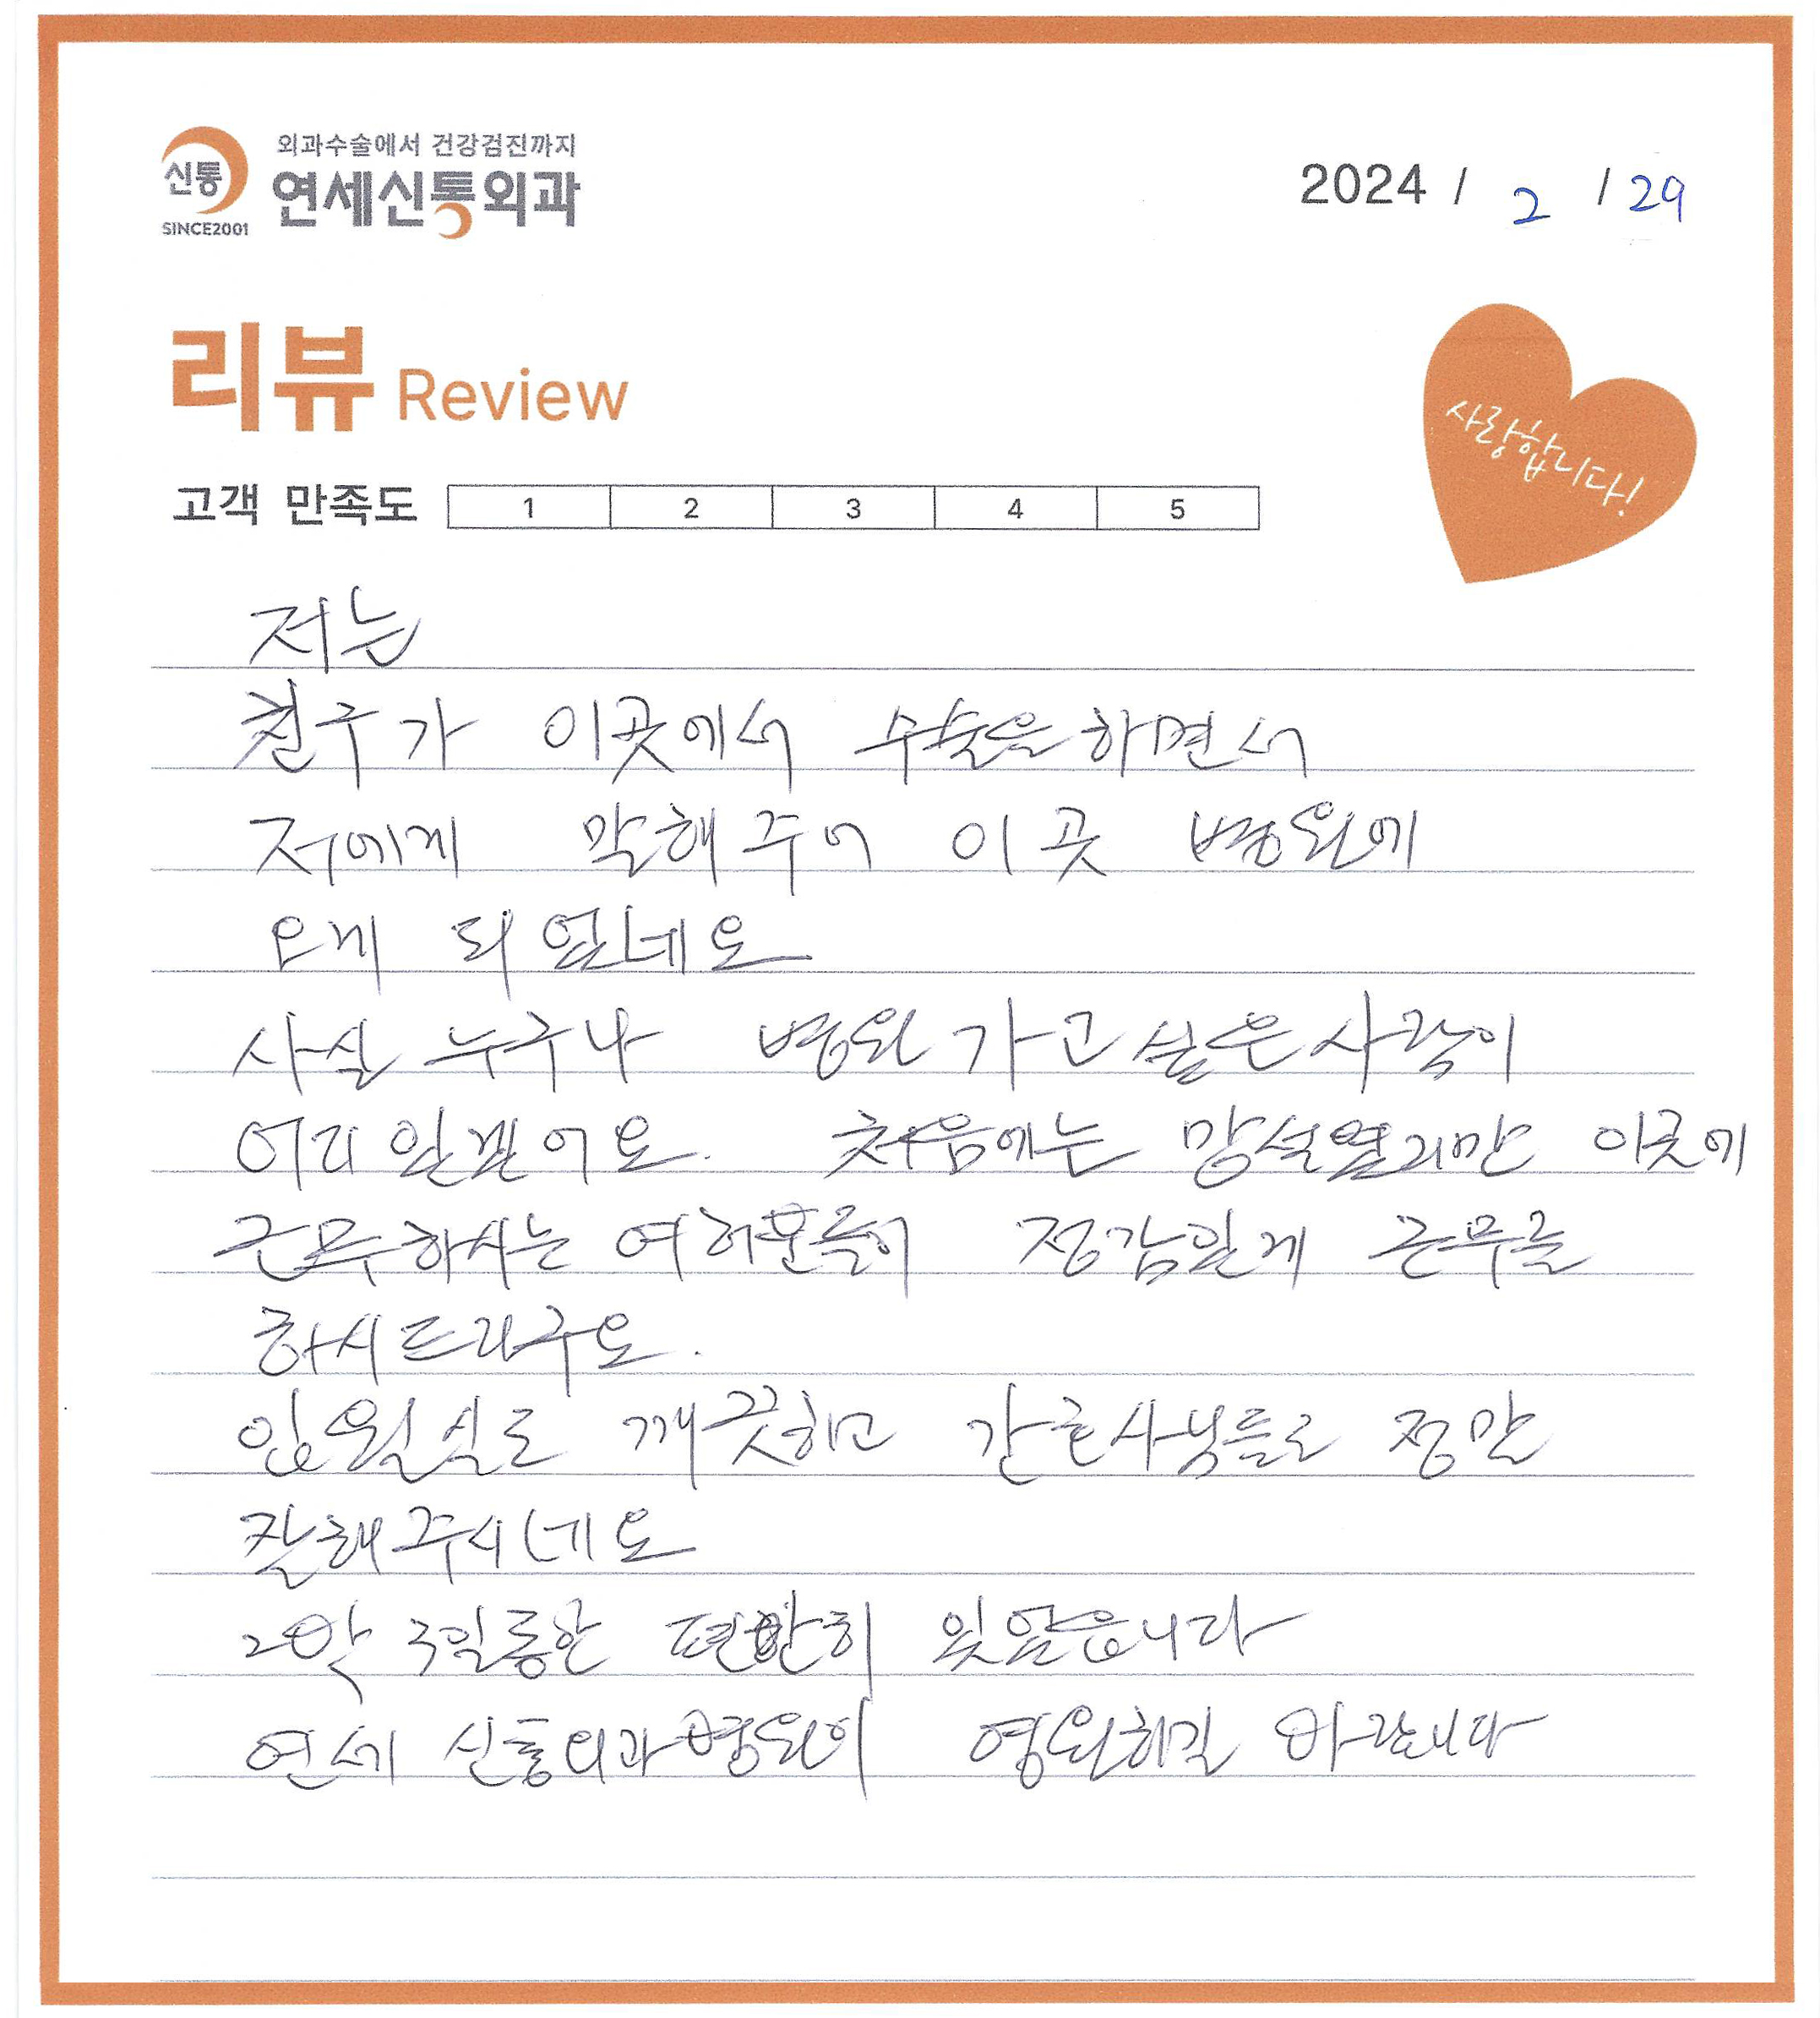 외과수술에서 건강검진까지
신통
연세신통외과
SINCE2001
2024 / 2 / 29
리뷰 Review
사랑합니다!
고객 만족도 1 2 3 4 5
저는
친구가 이곳에서 수술을하면서
저에게 말해주어 이곳 병원에
오게 되었네요
사실 누구나 병원가고싶은사람이
어디 있겠어요. 처음에는 망설였지만 이곳에
근무하시는 여러분들이 정감있게 근무를
하시드라구요.
입원실도 깨끗하고 간호사님들도 정말
잘해주시네요
2박 3일동안 편안히 있었습니다
연세 신통외과병원이 영원하길 바랍니다